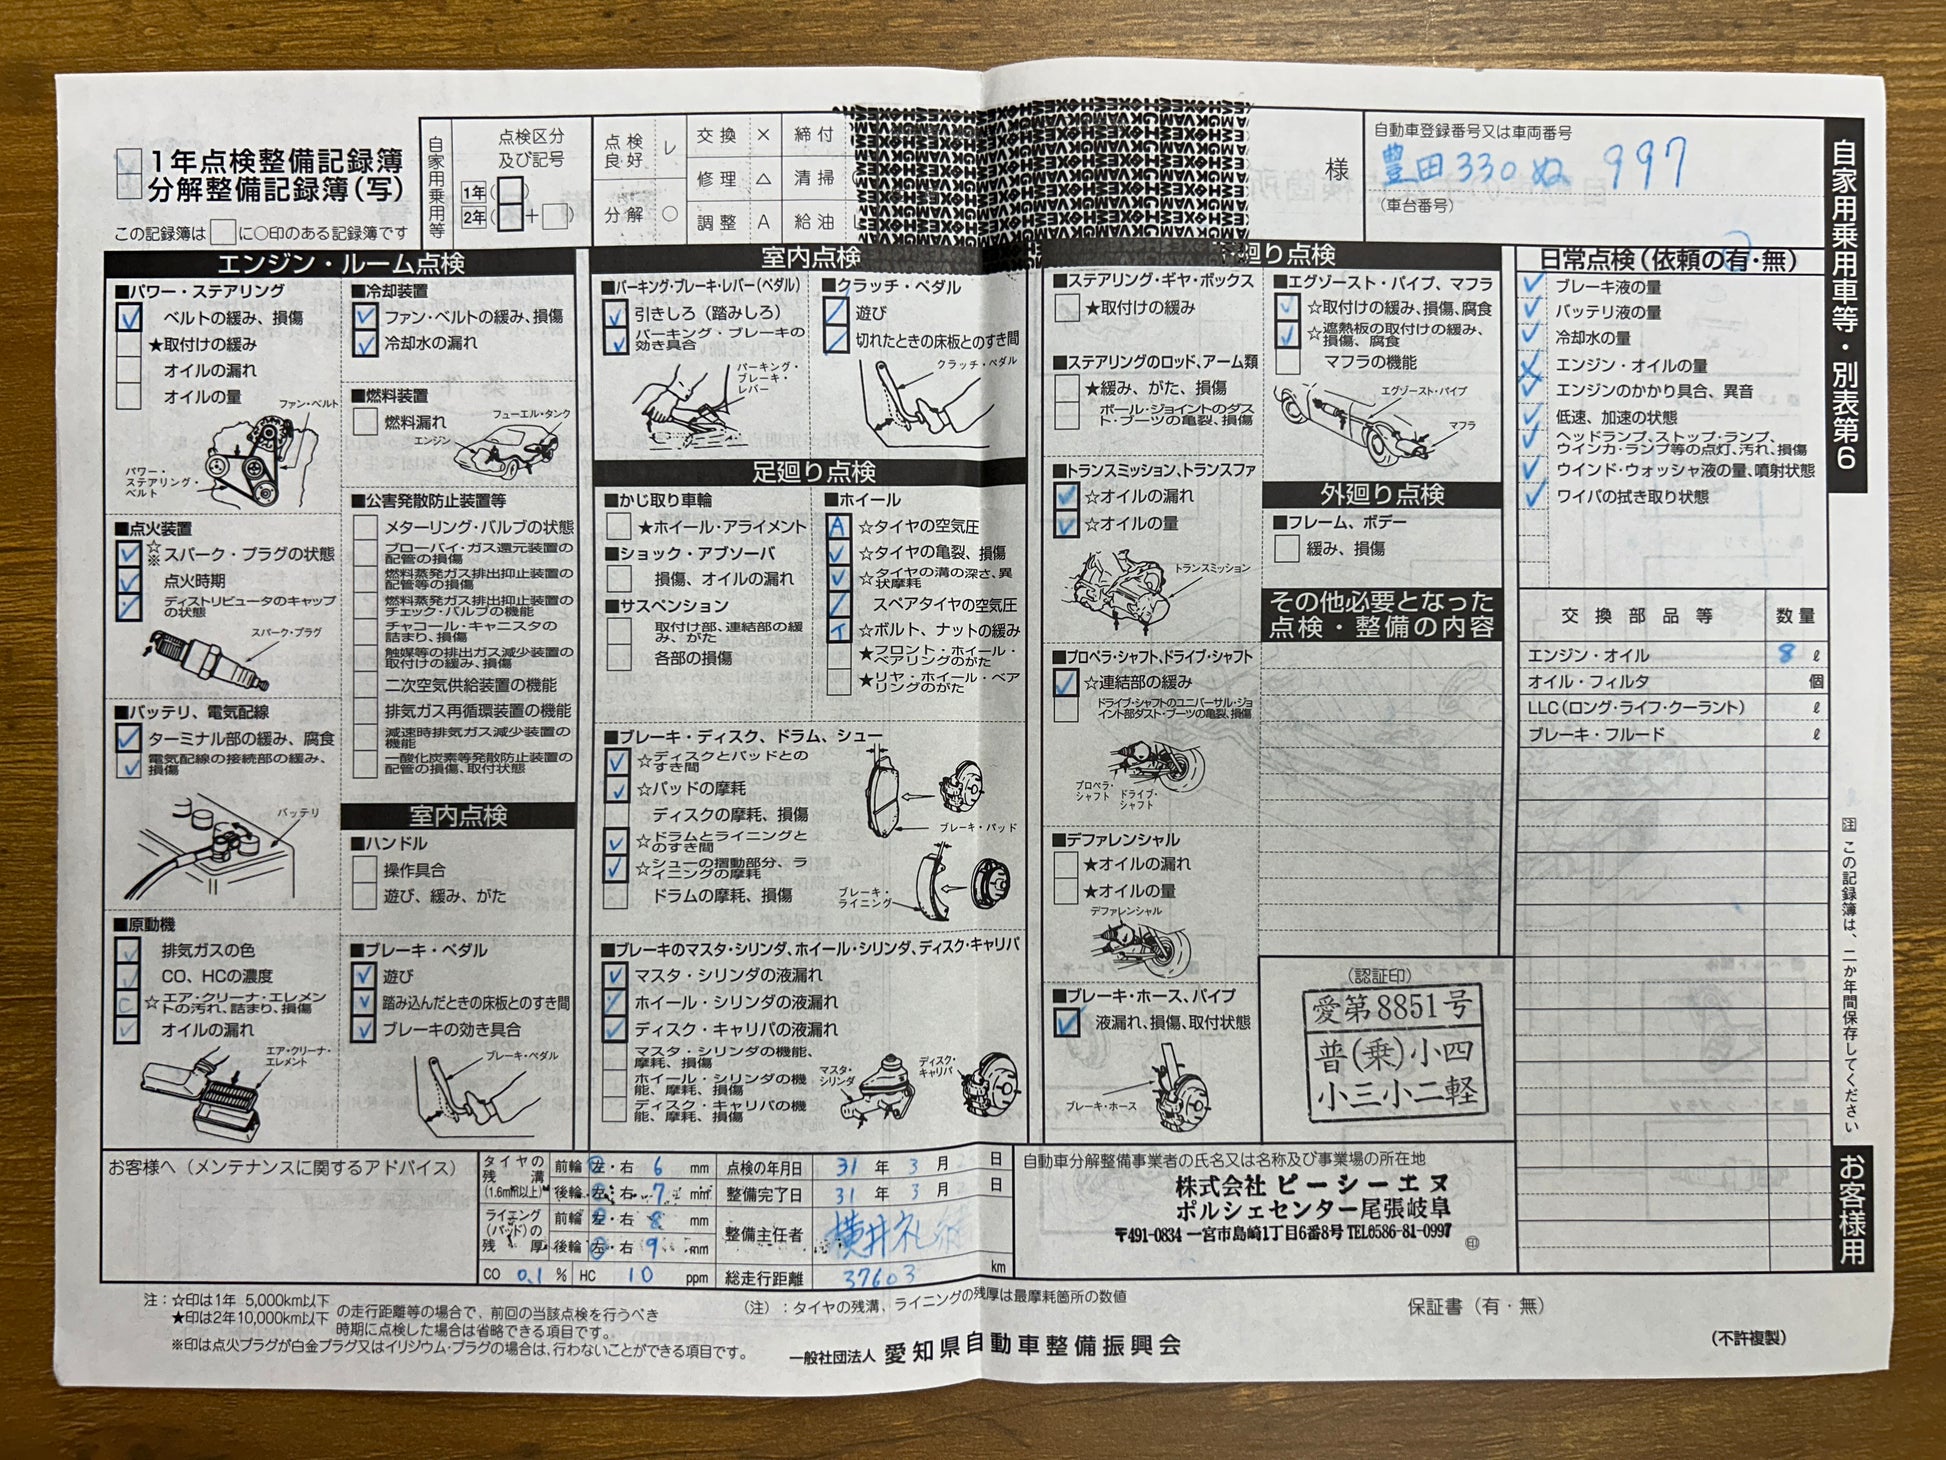 1年点検整備記録簿
分解整備記録簿(写)
この記録簿は に○印のある記録簿です
自家用乗用等
点検区分
及び記号
1年( )
2年( + )
点検良好 レ
分解 ○
交換 ×
修理 △
調整 A
締付
清掃
給油
様
自動車登録番号又は車両番号
豊田330 ぬ 997
(車台番号)
自家用乗用車等・別表第6
エンジン・ルーム点検
■パワー・ステアリング
ベルトの緩み、損傷
★取付けの緩み
オイルの漏れ
オイルの量
ファン・ベルト
パワー・
ステアリング・
ベルト
■点火装置
☆
※スパーク・プラグの状態
点火時期
ディストリビュータのキャップ
の状態
スパーク・プラグ
■バッテリ、電気配線
ターミナル部の緩み、腐食
電気配線の接続部の緩み、
損傷
バッテリ
■原動機
排気ガスの色
CO、HCの濃度
C ☆エア・クリーナ・エレメン
トの汚れ、詰まり、損傷
オイルの漏れ
エア・クリーナ・
エレメント
■冷却装置
ファン・ベルトの緩み、損傷
冷却水の漏れ
■燃料装置
燃料漏れ
フューエル・タンク
エンジン
■公害発散防止装置等
メターリング・バルブの状態
ブローバイ・ガス還元装置の
配管の損傷
燃料蒸発ガス排出抑止装置の
配管等の損傷
燃料蒸発ガス排出抑止装置の
チェック・バルブの機能
チャコール・キャニスタの
詰まり、損傷
触媒等の排出ガス減少装置の
取付けの緩み、損傷
二次空気供給装置の機能
排気ガス再循環装置の機能
減速時排気ガス減少装置の
機能
一酸化炭素等発散防止装置の
配管の損傷、取付状態
室内点検
■ハンドル
操作具合
遊び、緩み、がた
■ブレーキ・ペダル
遊び
踏み込んだときの床板とのすき間
ブレーキの効き具合
ブレーキ・ペダル
室内点検
■パーキング・ブレーキ・レバー(ペダル)
引きしろ(踏みしろ)
パーキング・ブレーキの
効き具合
パーキング・
ブレーキ・
レバー
■クラッチ・ペダル
遊び
切れたときの床板とのすき間
クラッチ・ペダル
足廻り点検
■かじ取り車輪
★ホイール・アライメント
■ショック・アブソーバ
損傷、オイルの漏れ
■サスペンション
取付け部、連結部の緩
み、がた
各部の損傷
■ホイール
A ☆タイヤの空気圧
☆タイヤの亀裂、損傷
☆タイヤの溝の深さ、異
状摩耗
スペアタイヤの空気圧
T ☆ボルト、ナットの緩み
★フロント・ホイール・
ベアリングのがた
★リヤ・ホイール・ベア
リングのがた
■ブレーキ・ディスク、ドラム、シュー
☆ディスクとパッドとの
すき間
☆パッドの摩耗
ディスクの摩耗、損傷
☆ドラムとライニングと
のすき間
☆シューの摺動部分、ラ
イニングの摩耗
ドラムの摩耗、損傷
ブレーキ・パッド
ブレーキ・
ライニング
■ブレーキのマスタ・シリンダ、ホイール・シリンダ、ディスク・キャリパ
マスタ・シリンダの液漏れ
ホイール・シリンダの液漏れ
ディスク・キャリパの液漏れ
マスタ・シリンダの機能、
摩耗、損傷
ホイール・シリンダの機
能、摩耗、損傷
ディスク・キャリパの機
能、摩耗、損傷
マスタ・
シリンダ
ディスク・
キャリパ
廻り点検
■ステアリング・ギヤ・ボックス
★取付けの緩み
■ステアリングのロッド、アーム類
★緩み、がた、損傷
ボール・ジョイントのダス
ト・ブーツの亀裂、損傷
■トランスミッション、トランスファ
☆オイルの漏れ
☆オイルの量
トランスミッション
■プロペラ・シャフト、ドライブ・シャフト
☆連結部の緩み
ドライブ・シャフトのユニバーサル・ジョ
イント部ダスト・ブーツの亀裂、損傷
プロペラ・
シャフト
ドライブ・
シャフト
■デファレンシャル
★オイルの漏れ
★オイルの量
デファレンシャル
■ブレーキ・ホース、パイプ
液漏れ、損傷、取付状態
ブレーキ・ホース
■エグゾースト・パイプ、マフラ
☆取付けの緩み、損傷、腐食
☆遮熱板の取付けの緩み、
損傷、腐食
マフラの機能
エグゾースト・パイプ
マフラ
外廻り点検
■フレーム、ボデー
緩み、損傷
その他必要となった
点検・整備の内容
(認証印)
愛第8851号
普(乗)小四
小三小二軽
日常点検(依頼の有・無)
ブレーキ液の量
バッテリ液の量
冷却水の量
エンジン・オイルの量
エンジンのかかり具合、異音
低速、加速の状態
ヘッドランプ、ストップ・ランプ、
ウインカ・ランプ等の点灯、汚れ、損傷
ウインド・ウォッシャ液の量、噴射状態
ワイパの拭き取り状態
交換部品等 数量
エンジン・オイル 8 ℓ
オイル・フィルタ 個
LLC(ロング・ライフ・クーラント) ℓ
ブレーキ・フルード ℓ
注 この記録簿は、二か年間保存してください
お客様用
お客様へ(メンテナンスに関するアドバイス)
タイヤの
残溝
(1.6mm以上)
前輪 左・右 6 mm
後輪 左・右 7 mm
ライニング
(パッド)の
残厚
前輪 左・右 8 mm
後輪 左・右 9 mm
CO 0.1 % HC 10 ppm
点検の年月日 31 年 3 月 日
整備完了日 31 年 3 月 日
整備主任者 横井
総走行距離 37603 km
自動車分解整備事業者の氏名又は名称及び事業場の所在地
株式会社 ピーシーエヌ
ポルシェセンター尾張岐阜
〒491-0834 一宮市島崎1丁目6番8号 TEL0586-81-0997
印
注:☆印は1年 5,000km以下
★印は2年10,000km以下
の走行距離等の場合で、前回の当該点検を行うべき
時期に点検した場合は省略できる項目です。
※印は点火プラグが白金プラグ又はイリジウム・プラグの場合は、行わないことができる項目です。
(注):タイヤの残溝、ライニングの残厚は最摩耗箇所の数値
一般社団法人 愛知県自動車整備振興会
保証書(有・無)
(不許複製)